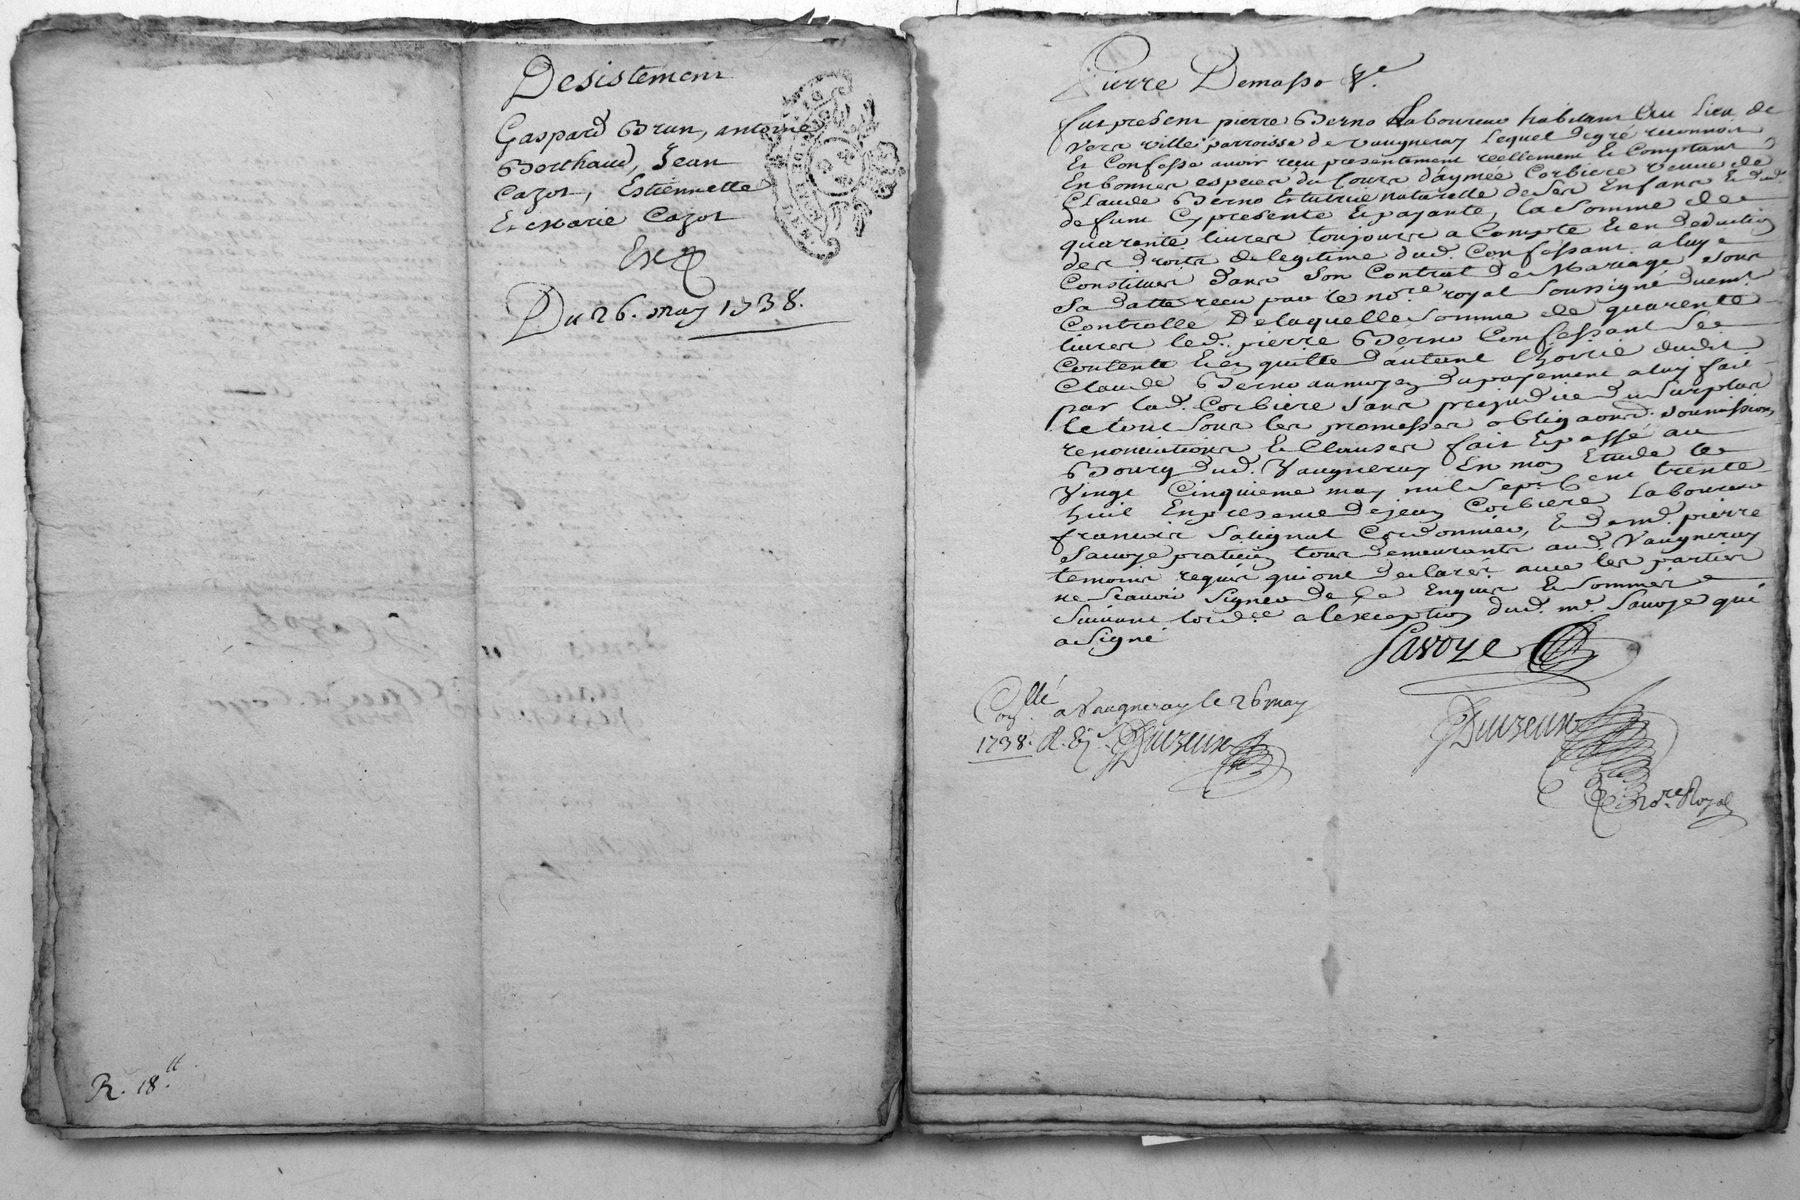 Desistement
Gaspard Brun, antoine
Berthaud, Jean
Cazot, Estiennette
Et Marie Cazot
Exp
Du 26. may 1738.
R. 18.tt
Pierre Demasso &.e
fut present pierre Berno Laboureur habitant Au Lieu de
vers ville parroisse de vaugneray lequel degré reconnoit
Et Confesse avoir reçu presentement reellement Et Comptant
En bonnes especes du Cours d'aymée Corbiere veuve de
Claude Berno tutrice naturelle de ses Enfans & dud.
defunt Cy presente Et payante, la somme de
quarente livres toujours a Compte Et en deduction
des droits de legitime dud. Confessant a luy
Constitués dans son Contrat de Mariage sous
sa datte reçu par le no.re royal soussigné duem.t
Controllé De laquelle somme de quarente
livres led. pierre Berno Confessant se
Contente Et en quitte d'autant l'hoirie dudit
Claude Berno au moyen du payement a luy fait
par lad. Corbiere sans prejudice du surplus
le tout sous les promesses obligaons. soumissions
renonciations & Clauses fait Et passé au
Bourg dud. Vaugneray En mon Etude le
vingt Cinquieme may mil sept Cent trente
huit En presence de jean Corbiere Laboureur
francois Salignat Cordonnier, Et de m.e pierre
Savoye praticien tous demeurants aud. Vaugneray
temoins requis qui ont declarés avec les parties
ne scavoir signer de ce Enquis & sommés
suivant l'ord.ce a l'exception dud. m.e Savoye qui
a signé
Savoye
Con.llé a Vaugneray le 26 may
1738. R.
no.re Royal